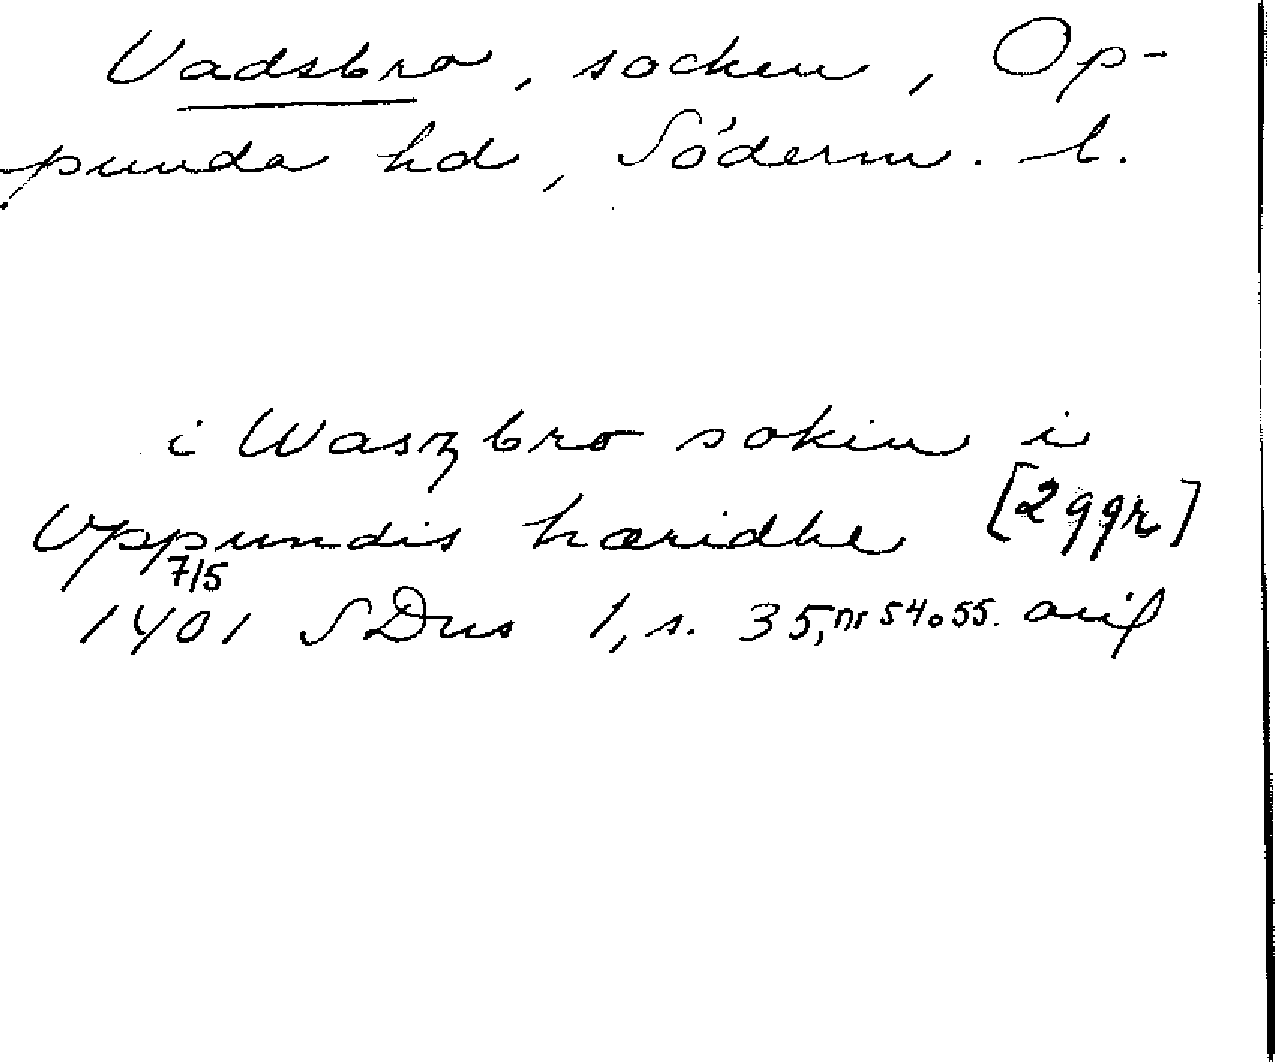 Vadsbro, socken, Op-
punda hd, Söderm. l.
i Waszbro sokin i
Vppundis hæridhe [2 ggr]
7/5
1401 SDns 1, s. 35, nr 54 o 55. avs